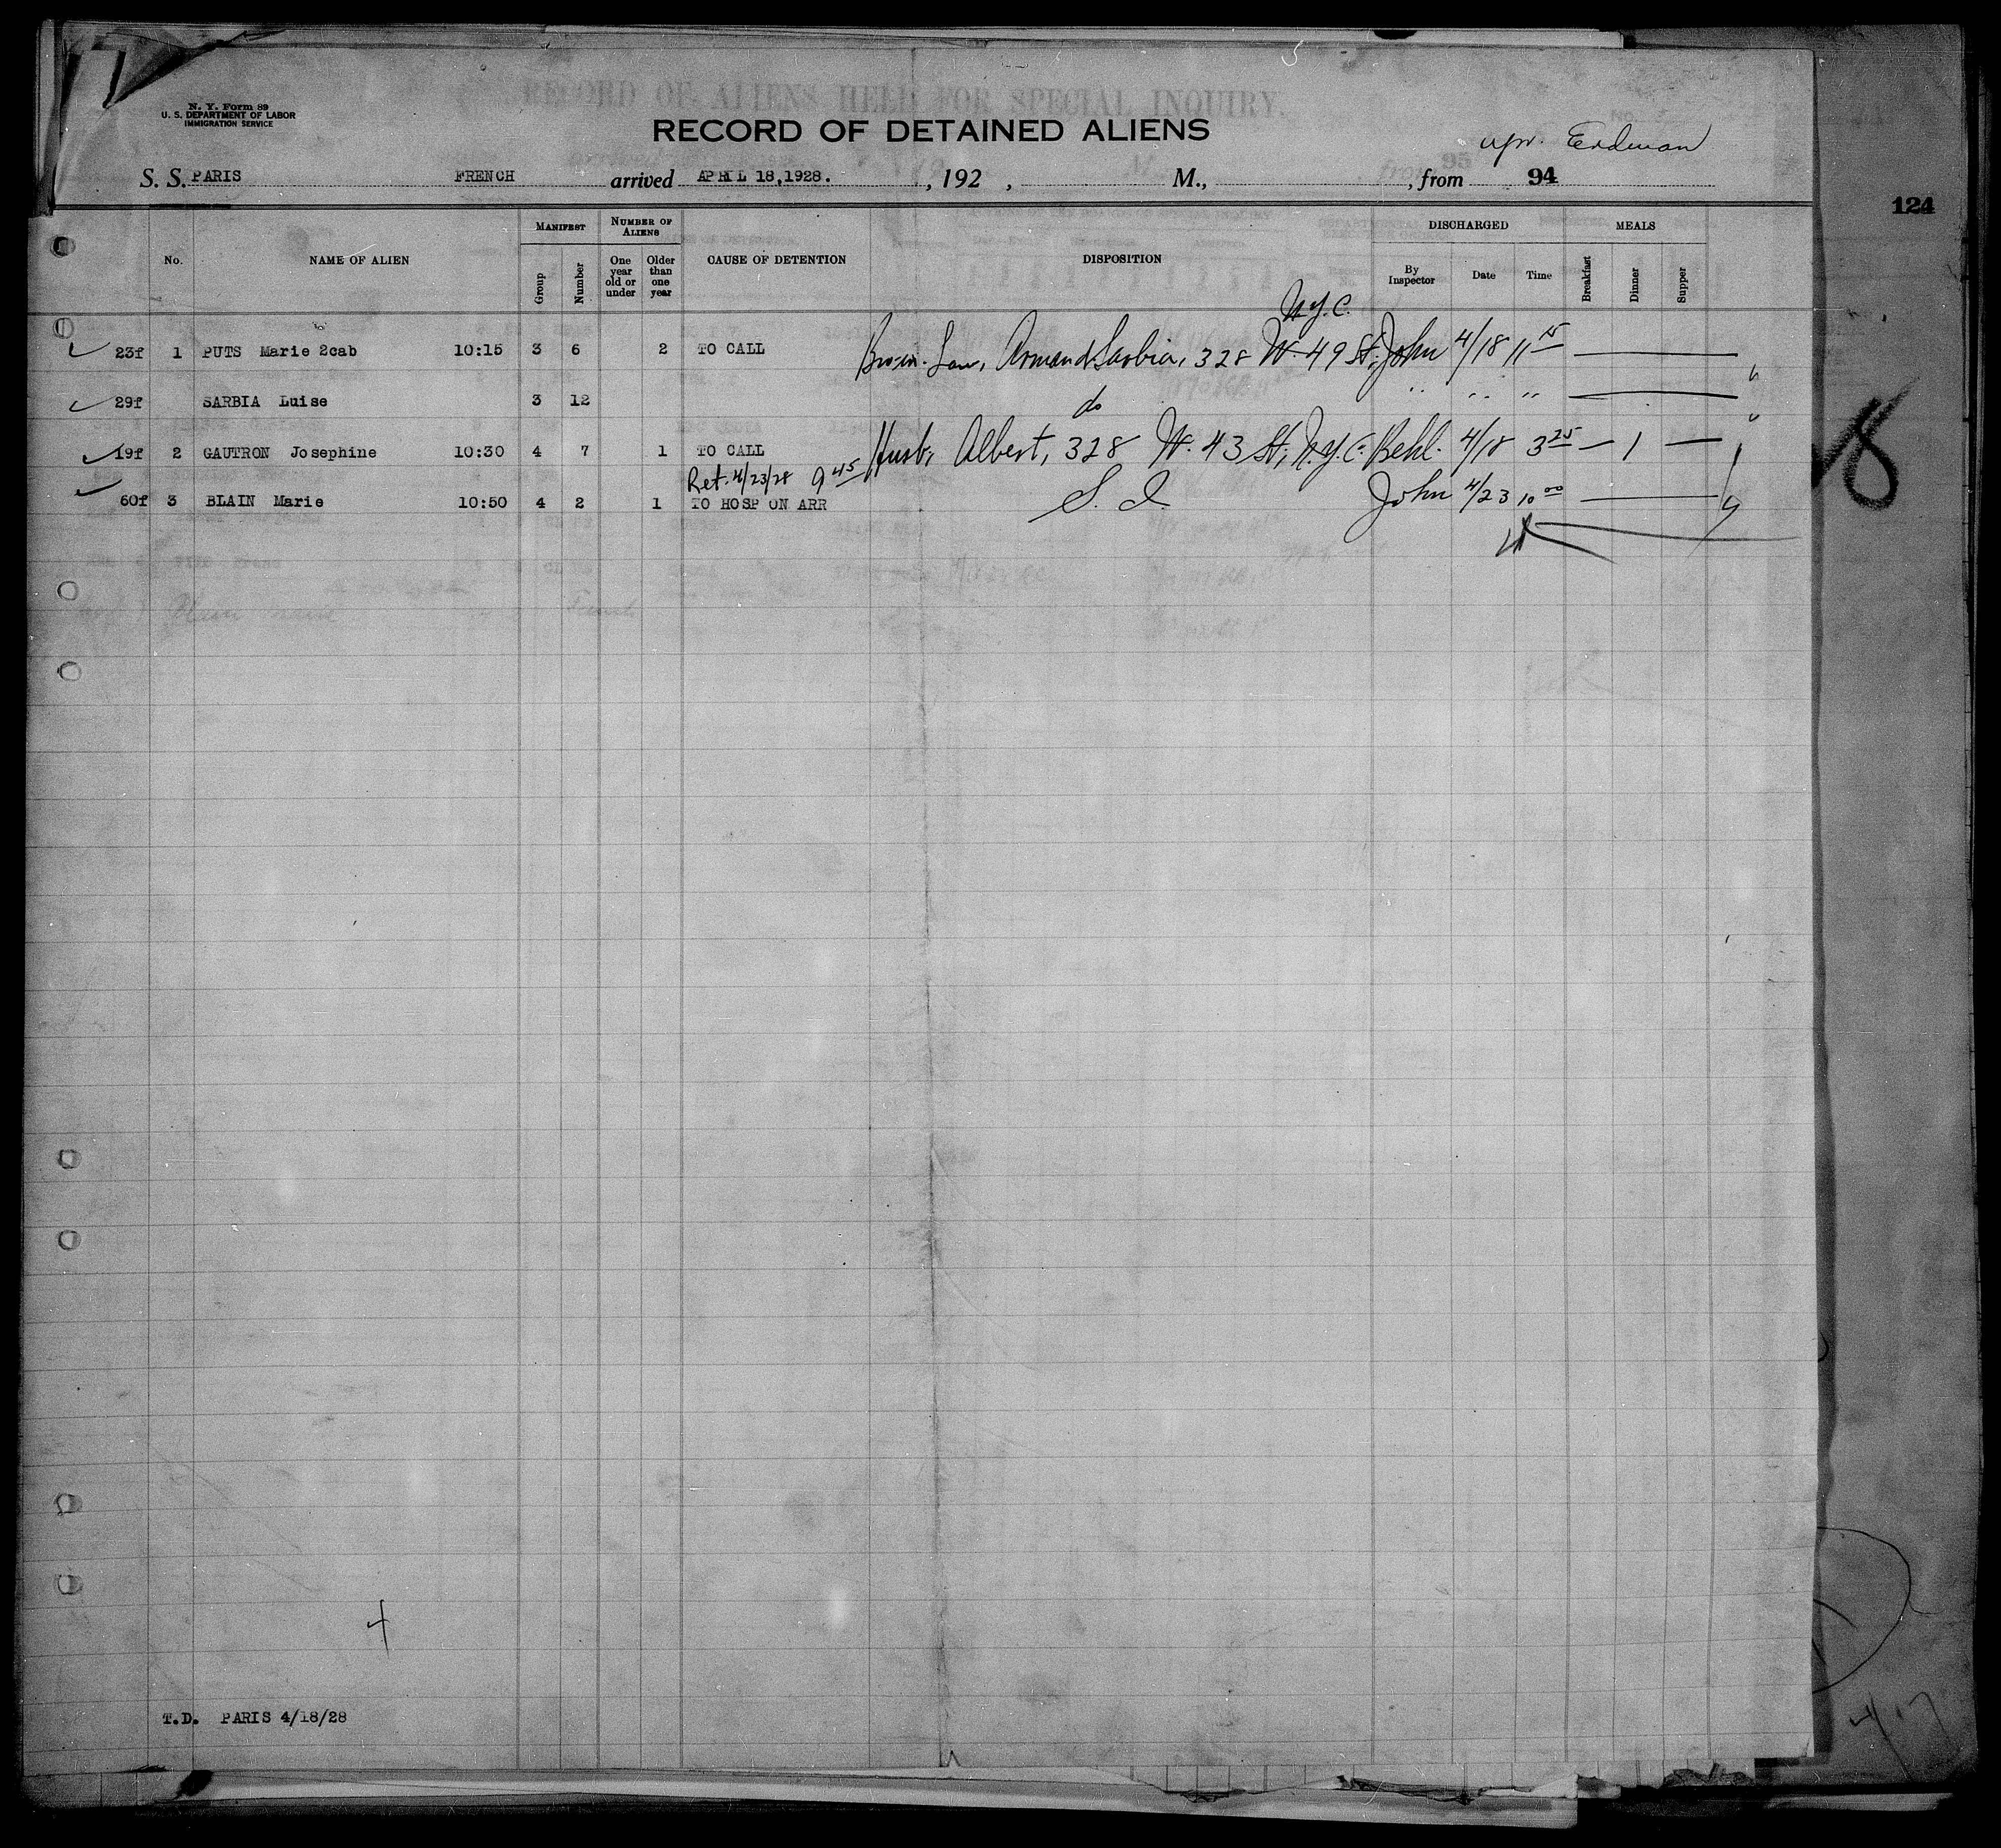 17
N. Y. Form 89
U. S. DEPARTMENT OF LABOR
IMMIGRATION SERVICE
RECORD OF ALIENS HELD FOR SPECIAL INQUIRY.
RECORD OF DETAINED ALIENS
Erdman
S. S. PARIS FRENCH arrived APRIL 18,1928. , 192 , M., , from 94
124
No. NAME OF ALIEN MANIFEST Group Number NUMBER OF ALIENS One year old or under Older than one year CAUSE OF DETENTION DISPOSITION DISCHARGED By Inspector Date Time MEALS Breakfast Dinner Supper
N.Y.C.
23f 1 PUTS Marie 2cab 10:15 3 6 2 TO CALL Bro.in. Law, Armand Sarbia, 328 W. 49 St. John 4/18 11 15
29f SARBIA Luise 3 12 do " " "
19f 2 GAUTRON Josephine 10:30 4 7 1 TO CALL Husb. Albert, 328 W. 43 St, N.Y.C. Behl. 4/18 3 25 — 1 —
Ret. 4/23/28 9 45
60f 3 BLAIN Marie 10:50 4 2 1 TO HOSP ON ARR S. I. John 4/23 10 00
T.D. PARIS 4/18/28
4/17